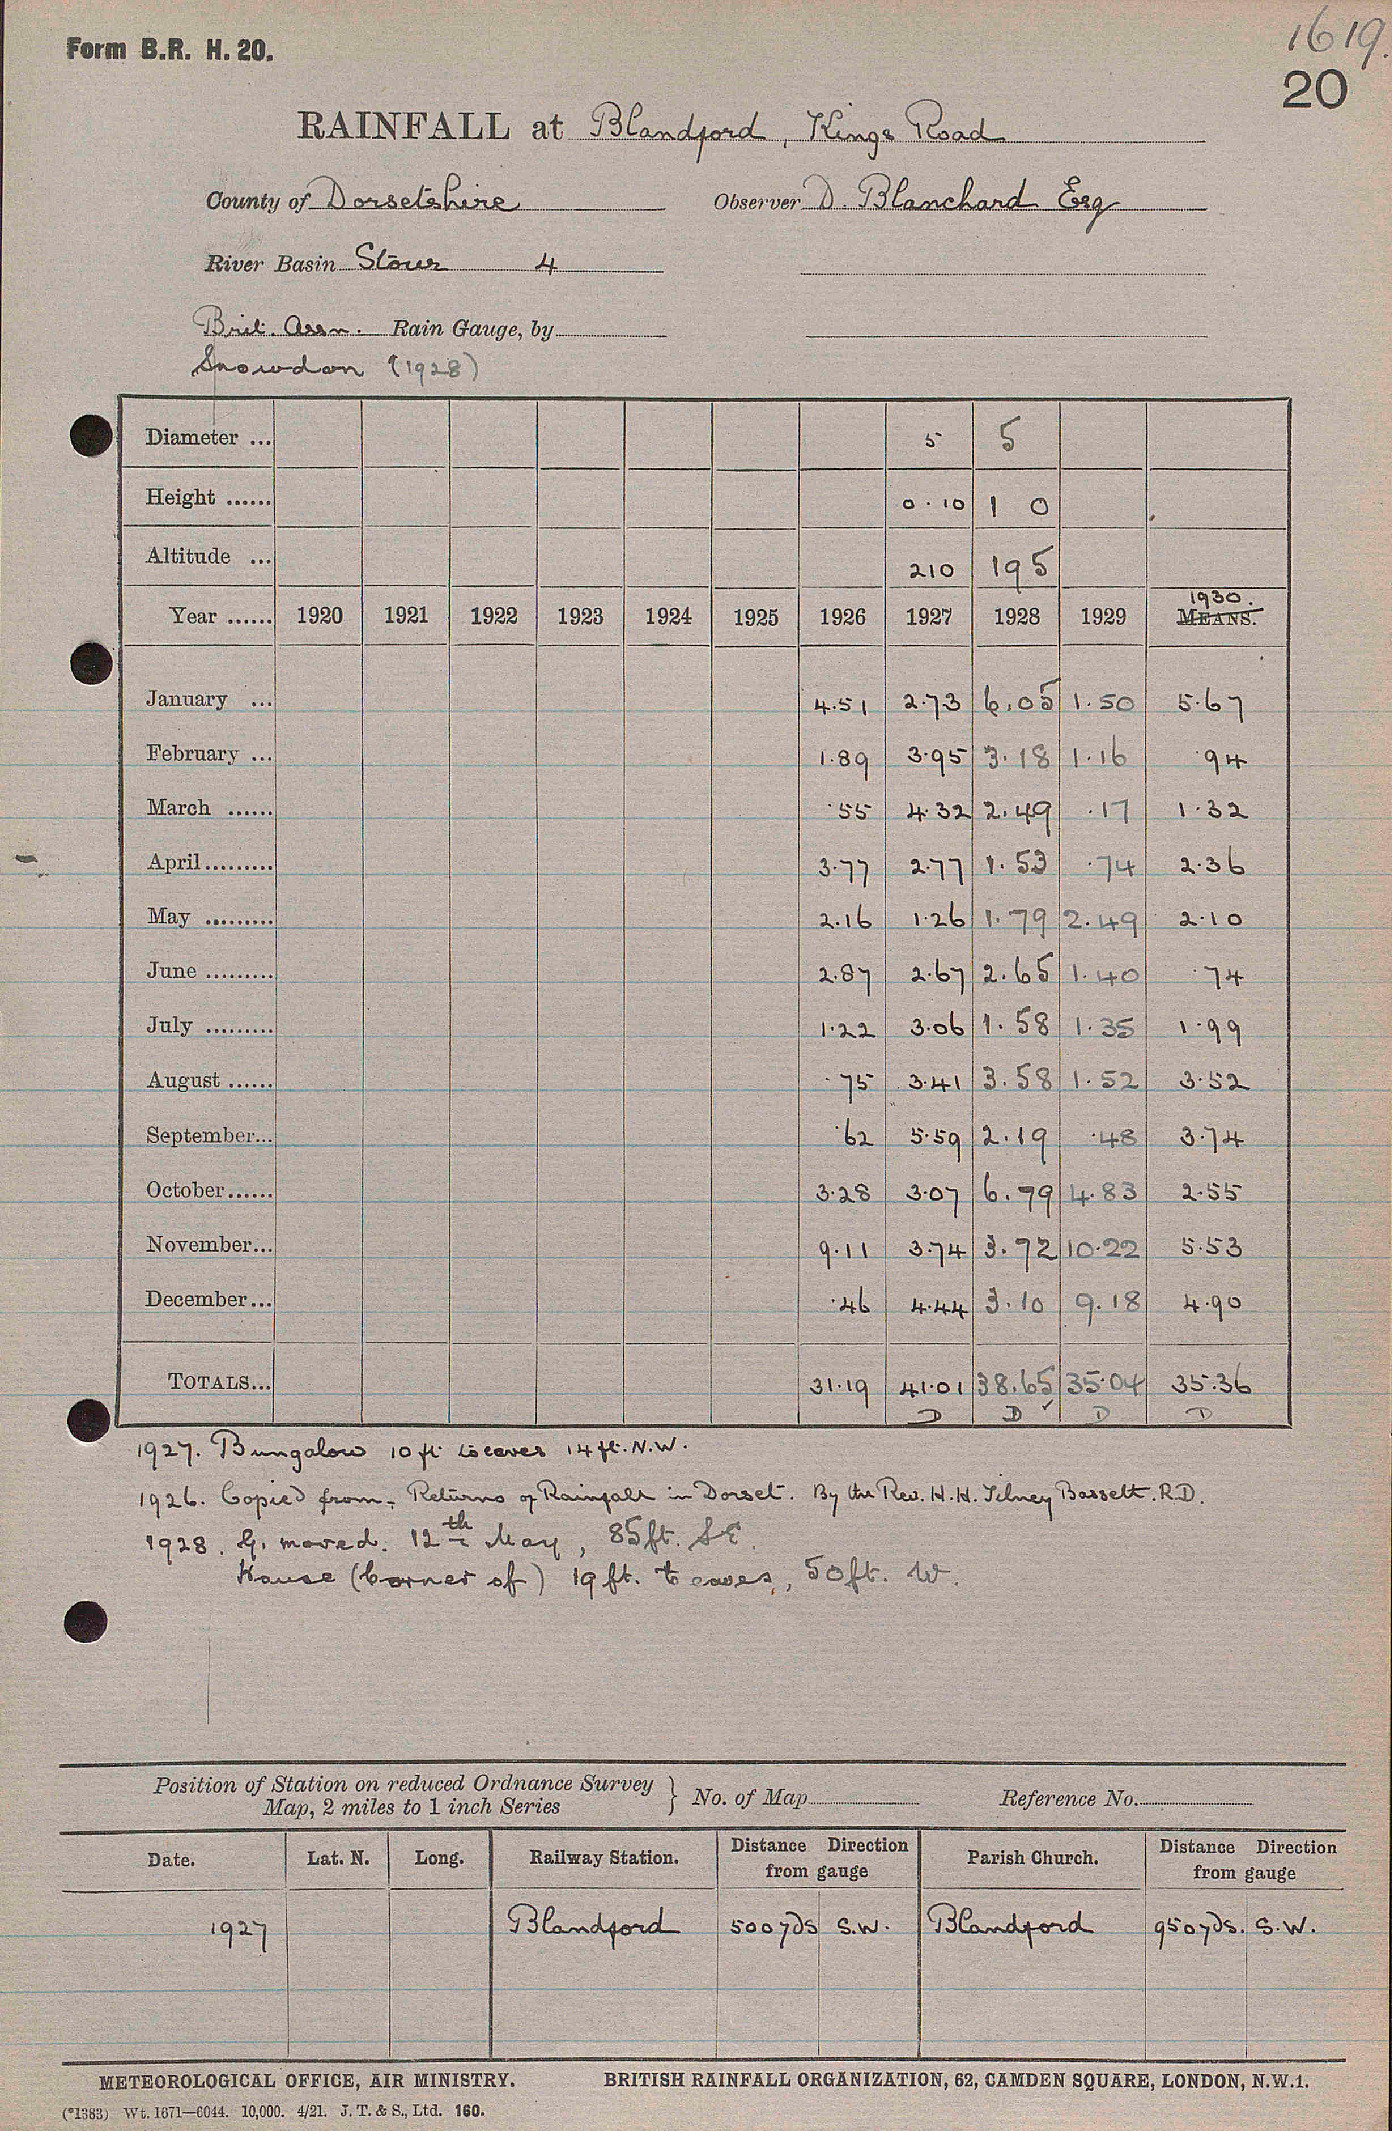 1619.
Form B.R. H. 20.
20
RAINFALL at Blandford, Kings Road
County of Dorsetshire Observer D. Blanchard Esq
River Basin Stour 4
Brit. Assn. Rain Gauge, by
Snowdon (1928)
Diameter ... 5 5
Height ...... 0·10 1 0
Altitude ... 210 195
Year ...... 1920 1921 1922 1923 1924 1925 1926 1927 1928 1929 1930. MEANS.
January ... 4·51 2·73 6.05 1.50 5·67
February ... 1·89 3·95 3.18 1.16 ·94
March ...... ·55 4·32 2.49 ·17 1·32
April......... 3·77 2·77 1.53 ·74 2·36
May ......... 2·16 1·26 1.79 2.49 2·10
June ......... 2·87 2·67 2.65 1.40 ·74
July ......... 1·22 3·06 1.58 1.35 1·99
August ...... ·75 3·41 3.58 1.52 3·52
September... ·62 5·59 2.19 ·48 3·74
October...... 3·28 3·07 6.79 4.83 2·55
November... 9·11 3·74 3.72 10·22 5·53
December... ·46 4·44 3.10 9.18 4·90
TOTALS... 31·19 41·01 38.65 35·04 35·36
D D ✓ D D
1927. Bungalow 10 ft to eaves 14 ft. N.W.
1926. Copied from - Returns of Rainfall in Dorset. By the Rev. H. H. Tilney Bassett. R.D.
1928. G. moved. 12th May, 85 ft. S E.
House (Corner of) 19 ft. to eaves, 50 ft. W.
Position of Station on reduced Ordnance Survey
Map, 2 miles to 1 inch Series } No. of Map Reference No.
Date. Lat. N. Long. Railway Station. Distance Direction from gauge Parish Church. Distance Direction from gauge
1927 Blandford 500 yds S.W. Blandford 950 yds. S.W.
METEOROLOGICAL OFFICE, AIR MINISTRY. BRITISH RAINFALL ORGANIZATION, 62, CAMDEN SQUARE, LONDON, N.W.1.
(*1383) Wt. 1671—6044. 10,000. 4/21. J. T. & S., Ltd. 160.